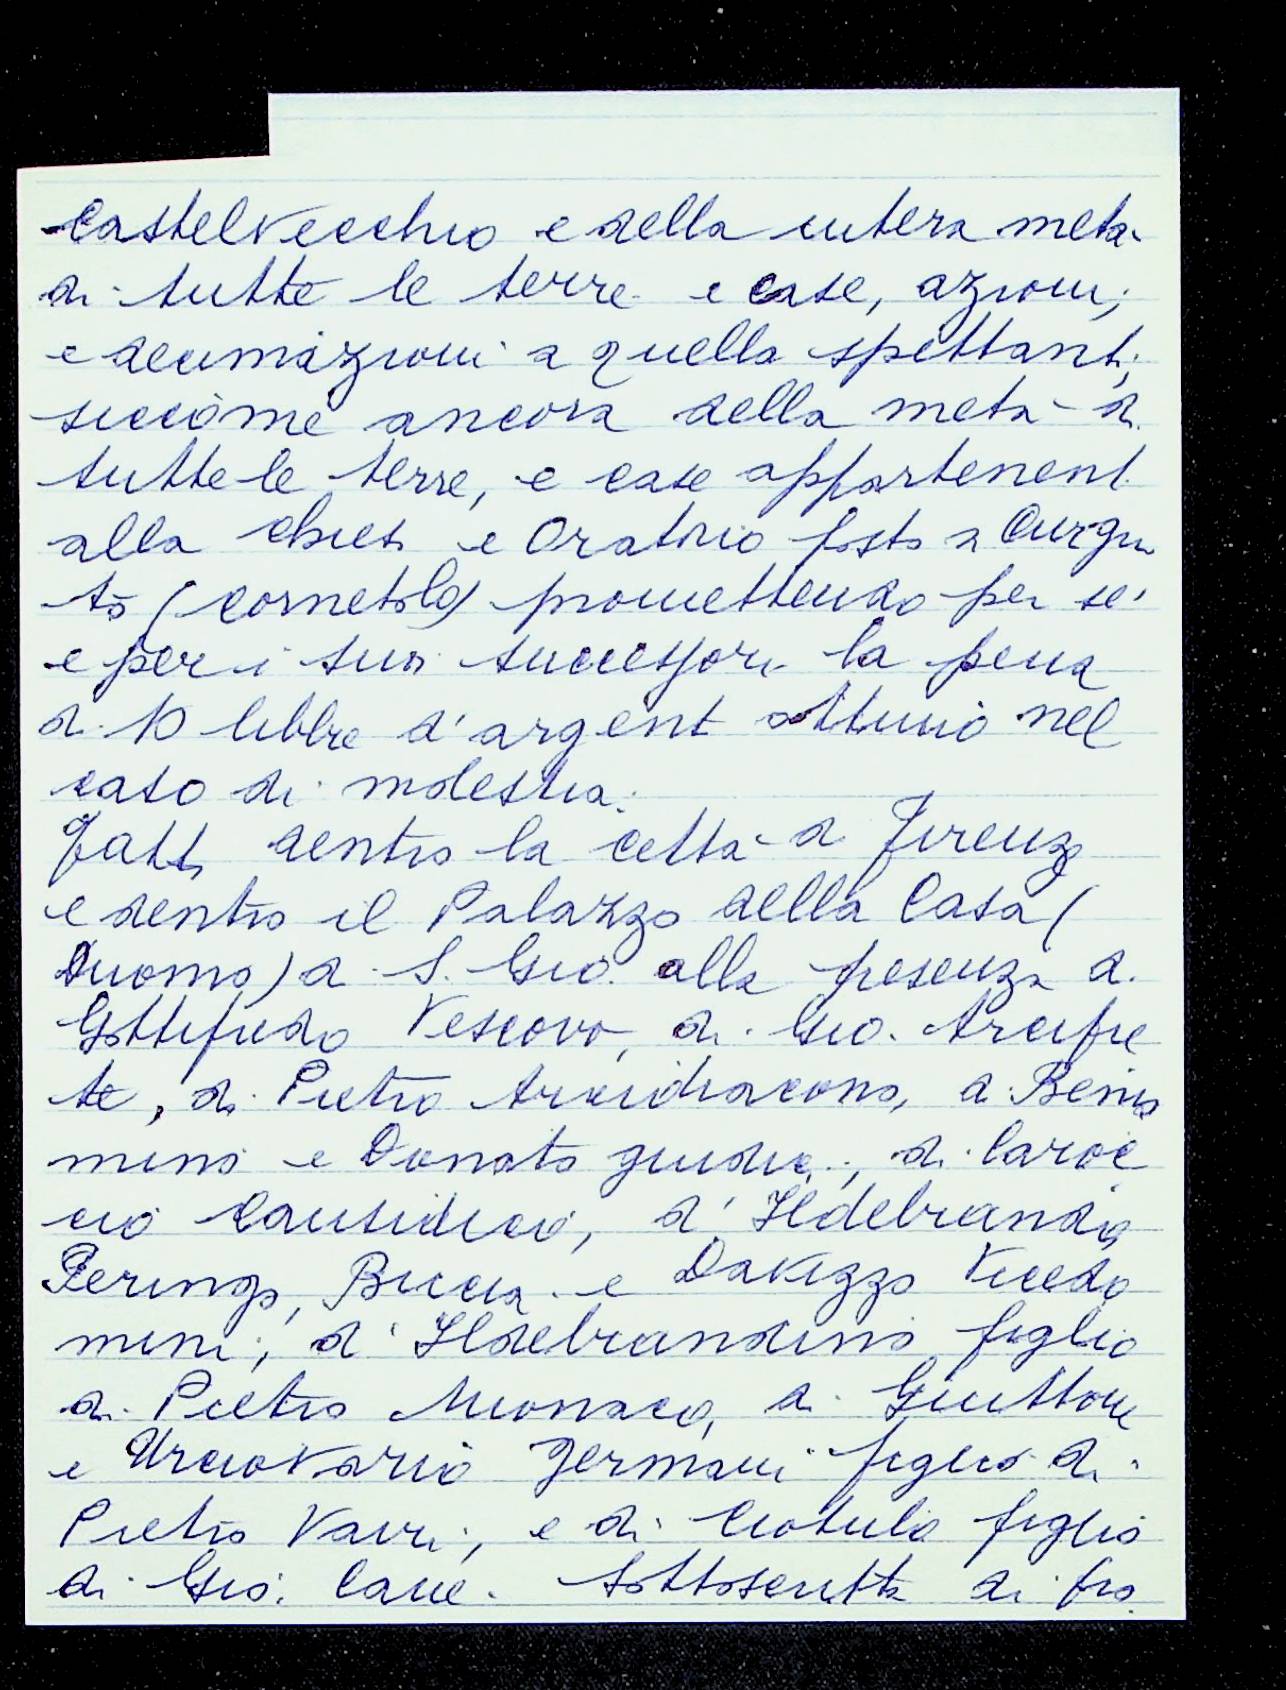 Castelvecchio e della intera meta
di tutte le terre e case, azioni,
e decimazioni a quella spettanti,
siccome ancora della meta di
tutte le terre, e case appartenent
alla chiesa e Oratorio posto a Curgu
to (cornetolo) promettendo per se'
e per i suoi successori la pena
di 10 libbre d'argent ottimo nel
caso di molestia.
Fatto dentro la citta di Firenze
e dentro il Palazzo della Casa (
Duomo) di S. Gio. alla presenza di
Gottifredo Vescovo, di Gio. Arcipre
te, di Pietro Arcidiacono, di Benia
mino e Donato giudici, di Caroc
cio Causidico, d' Ildebrando,
Peringo, Biccia e Davizzo Vicedo
mini, d' Ildebrandino figlio
di Pietro Monaco, di Guittone
e Urciovario germani figlio di
Pietro Vairi, e di figlio
di Gio. Cane. Sottoscritta di pro